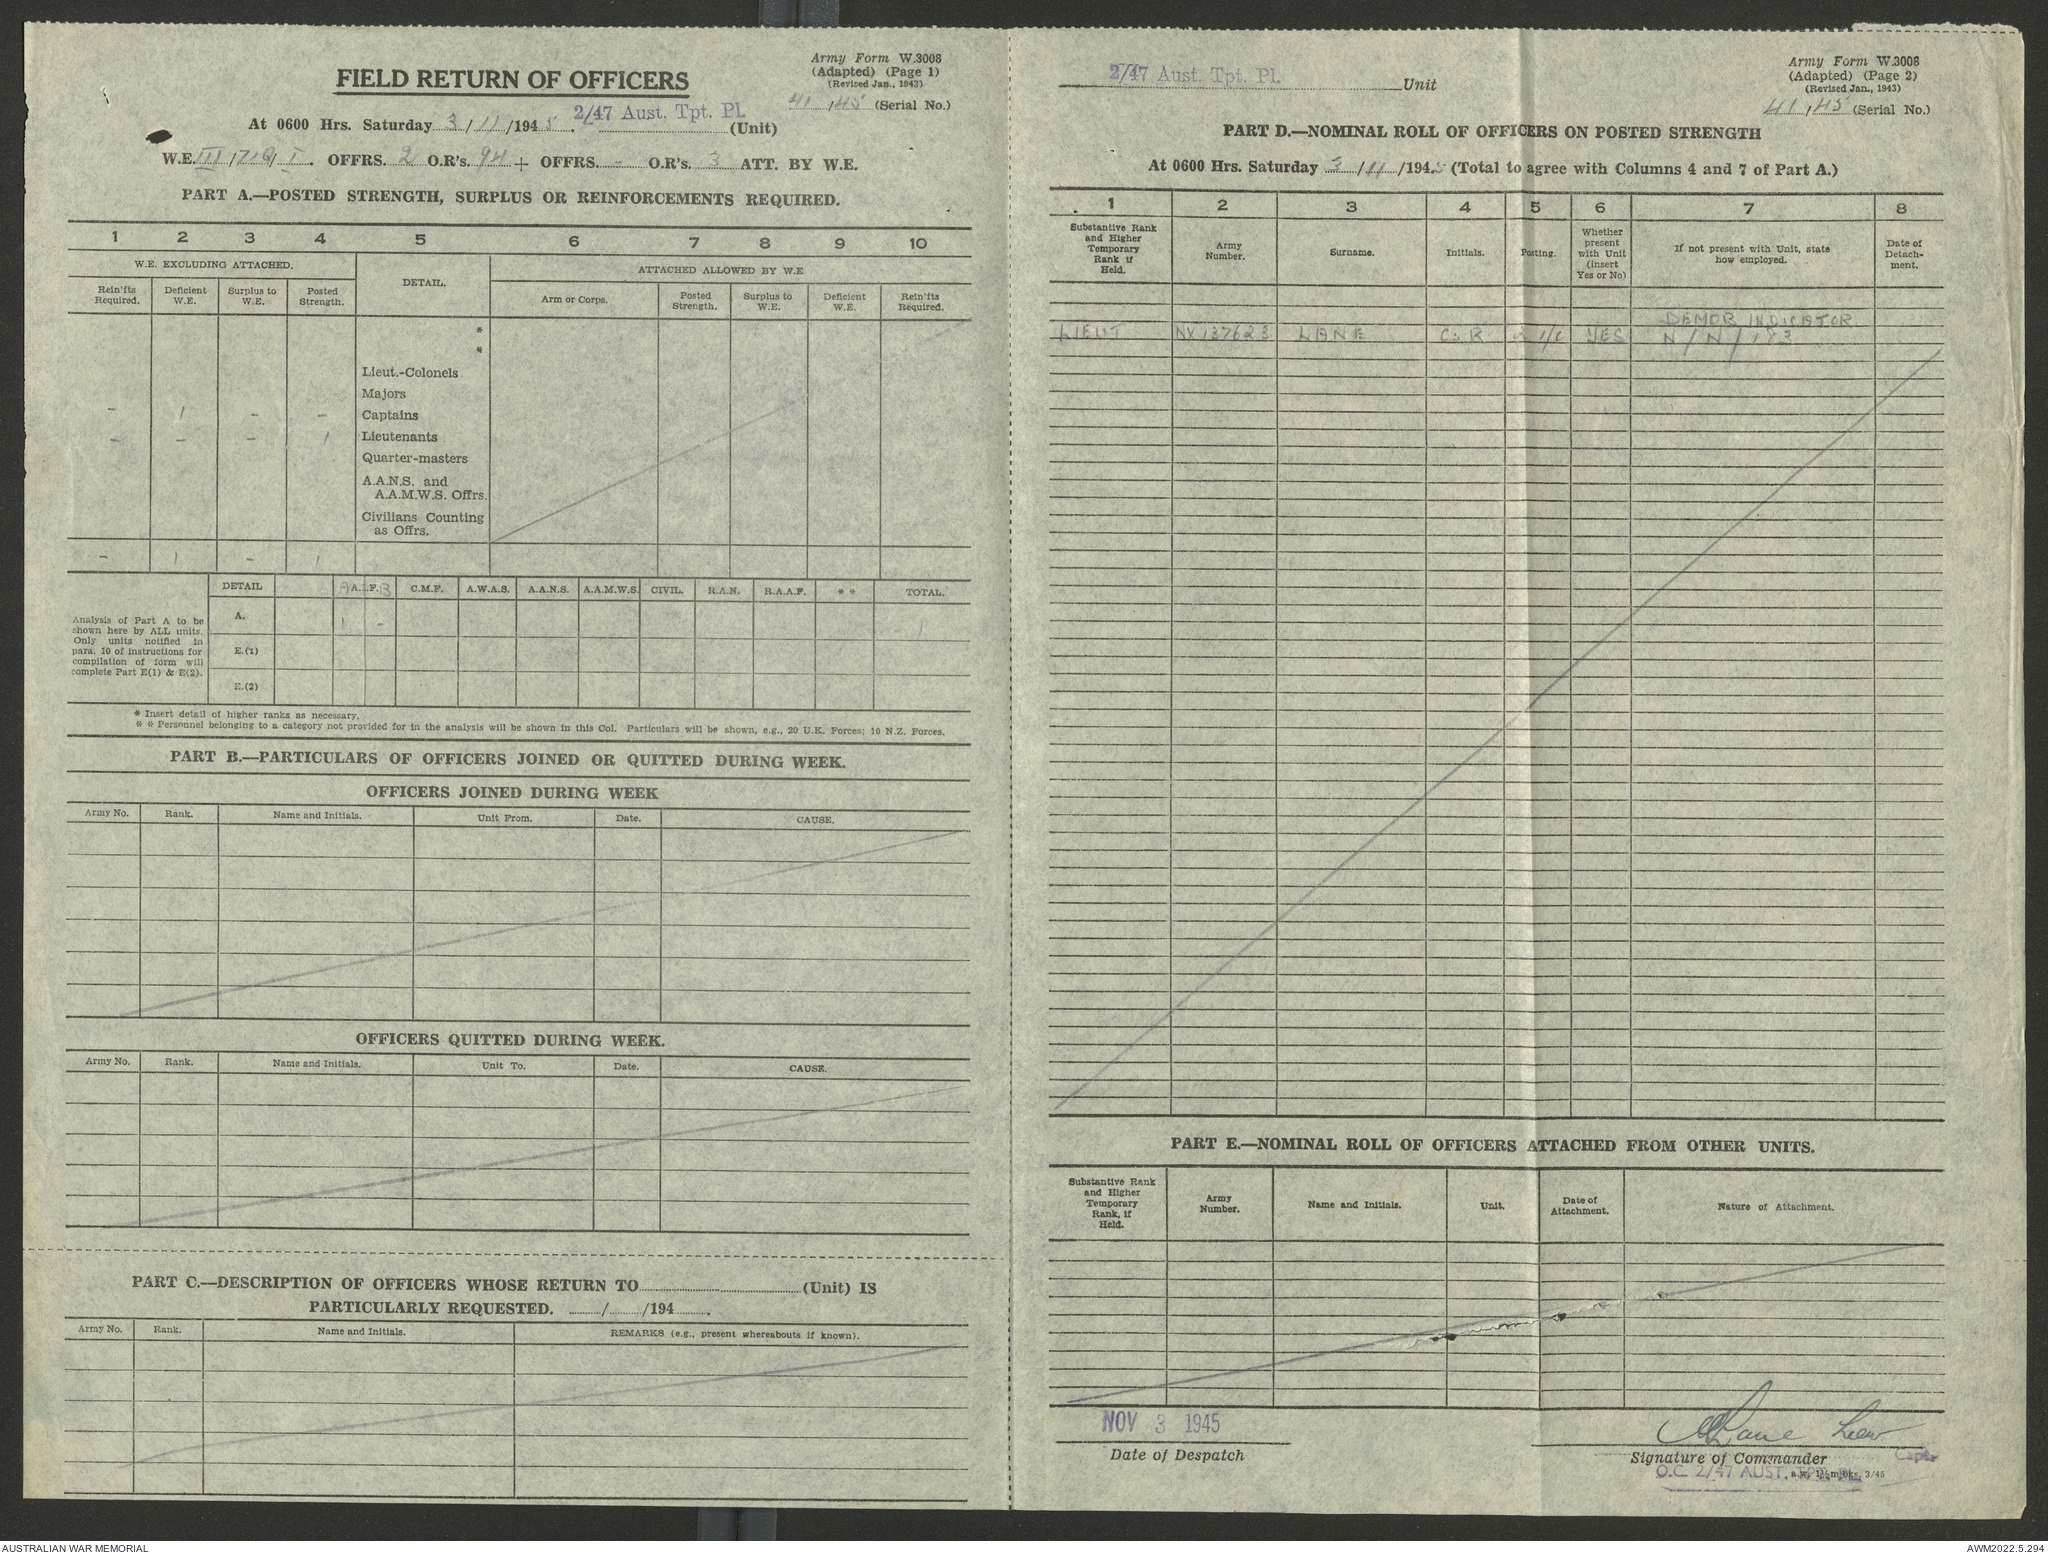 Army Form W.3008
(Adapted) (Page 1)
(Revised Jan., 1943)
FIELD RETURN OF OFFICERS
41/45 (Serial No.)
At 0600 Hrs. Saturday 3/11/1945. 2/47 Aust. Tpt. Pl. (Unit)
W.E. III/ /I. OFFRS. 2 O.R's. 94 + OFFRS. - O.R's. 3 ATT. BY W.E.
PART A.—POSTED STRENGTH, SURPLUS OR REINFORCEMENTS REQUIRED.
1 2 3 4 5 6 7 8 9 10
W.E. EXCLUDING ATTACHED. DETAIL. ATTACHED ALLOWED BY W.E.
Rein'fts Required. Deficient W.E. Surplus to W.E. Posted Strength. Arm or Corps. Posted Strength. Surplus to W.E. Deficient W.E. Rein'fts Required.
*
*
Lieut.-Colonels
Majors
- 1 - - Captains
- - - 1 Lieutenants
Quarter-masters
A.A.N.S. and
A.A.M.W.S. Offrs.
Civilians Counting
as Offrs.
- 1 - 1
DETAIL A A.I.F. B C.M.F. A.W.A.S. A.A.N.S. A.A.M.W.S. CIVIL. R.A.N. R.A.A.F. * * TOTAL.
Analysis of Part A to be
shown here by ALL units.
Only units notified in
para. 10 of instructions for
compilation of form will
complete Part E(1) & E(2).
A. 1 - 1
E.(1)
E.(2)
* Insert detail of higher ranks as necessary.
* * Personnel belonging to a category not provided for in the analysis will be shown in this Col. Particulars will be shown, e.g., 20 U.K. Forces; 10 N.Z. Forces.
PART B.—PARTICULARS OF OFFICERS JOINED OR QUITTED DURING WEEK.
OFFICERS JOINED DURING WEEK
Army No. Rank. Name and Initials. Unit From. Date. CAUSE.
OFFICERS QUITTED DURING WEEK.
Army No. Rank. Name and Initials. Unit To. Date. CAUSE.
PART C.—DESCRIPTION OF OFFICERS WHOSE RETURN TO (Unit) IS
PARTICULARLY REQUESTED. / /194 .
Army No. Rank. Name and Initials. REMARKS (e.g., present whereabouts if known).
2/47 Aust. Tpt. Pl. Unit
Army Form W.3008
(Adapted) (Page 2)
(Revised Jan., 1943)
41/45 (Serial No.)
PART D.—NOMINAL ROLL OF OFFICERS ON POSTED STRENGTH
At 0600 Hrs. Saturday 3/11/1945 (Total to agree with Columns 4 and 7 of Part A.)
1 2 3 4 5 6 7 8
Substantive Rank and Higher Temporary Rank if Held. Army Number. Surname. Initials. Posting. Whether present with Unit (insert Yes or No) If not present with Unit, state how employed. Date of Detachment.
DEMOB INDICATOR
LIEUT NX137623 LANE C. R 2 I/C YES N/N/183
PART E.—NOMINAL ROLL OF OFFICERS ATTACHED FROM OTHER UNITS.
Substantive Rank and Higher Temporary Rank, if Held. Army Number. Name and Initials. Unit. Date of Attachment. Nature of Attachment.
NOV 3 1945
Date of Despatch
Lane Lieut
Signature of Commander Capt.
O.C. 2/47 AUST. TPT. PL.
a.w. 1½m bks. 3/45
AUSTRALIAN WAR MEMORIAL
AWM2022.5.294